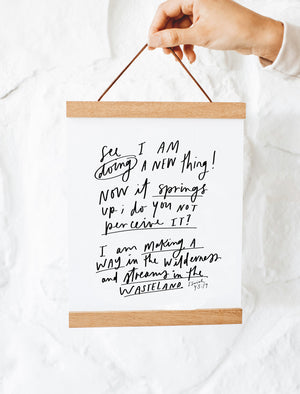 See I AM
doing A NEW thing!
NOW it springs
up; do you NOT
perceive IT?
I am MAKING A
WAY in the wilderness
and streams in the
WASTELAND. Isaiah
43:19